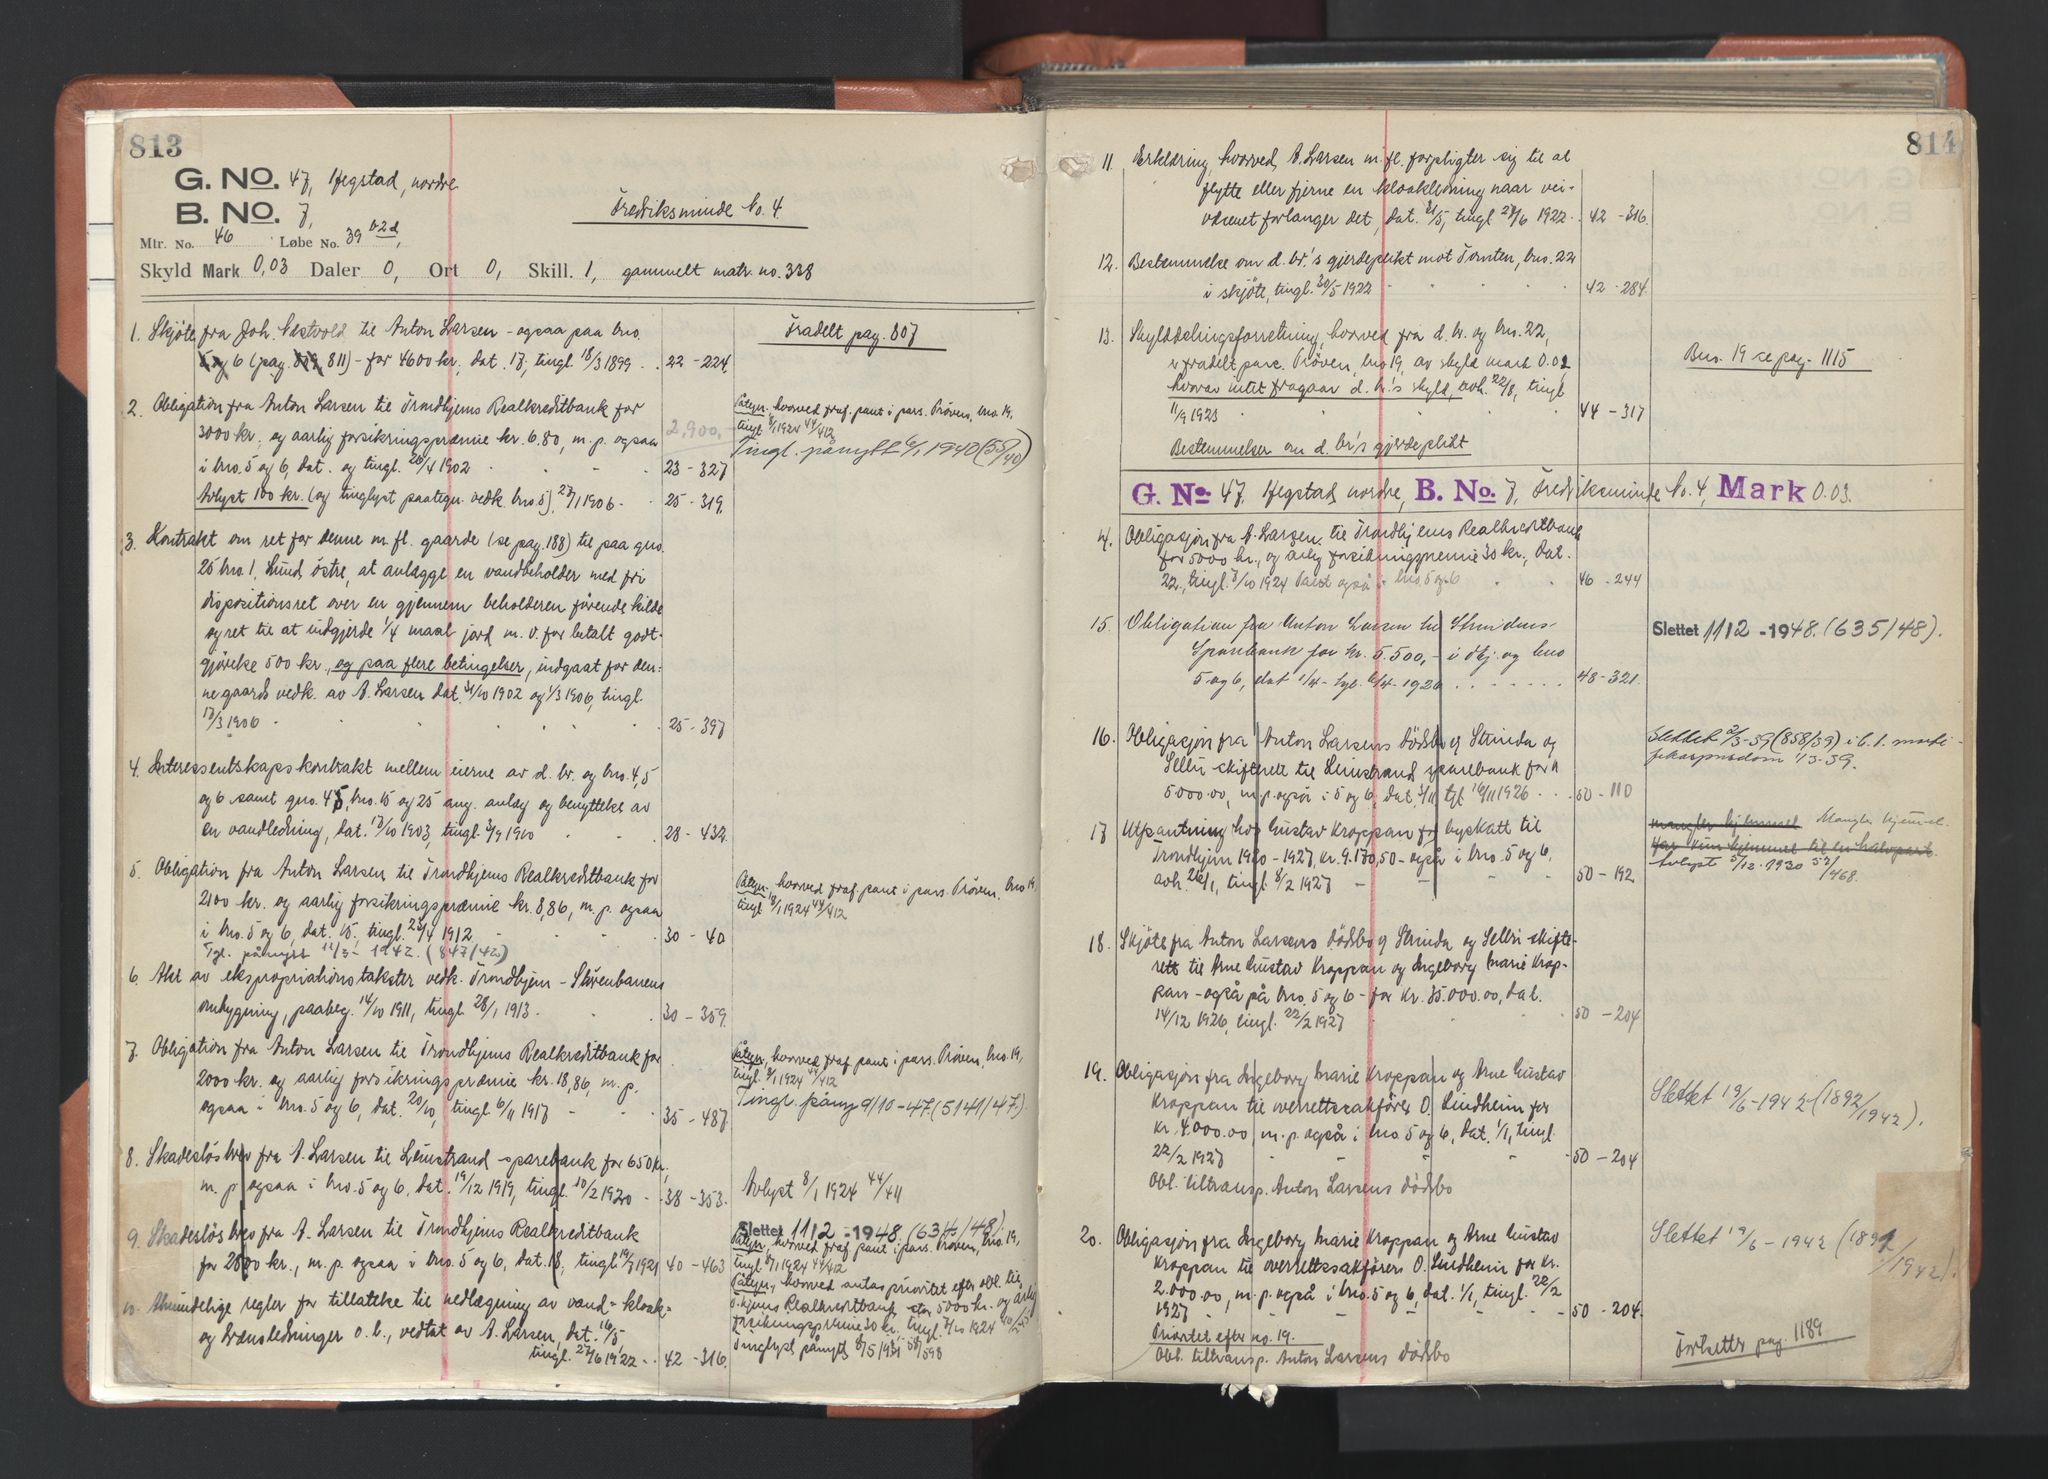 813
G. No. 47, Hegstad, nordre
B. No. 7,
Fredriksminde No. 4
Mtr. No. 46 Løbe No. 39 b2d,
Skyld Mark 0,03 Daler 0, Ort 0, Skill. 1, gammelt matr. no. 338
Fradelt pag. 807
1. Skjöte fra Joh. Vestvold til Anton Larsen - ogsaa paa bno.
og 6 (pag. 811) - for 4600 kr., dat. 17, tingl. 18/3 1899 22 - 224.
2. Obligation fra Anton Larsen til Trondhjems Realkreditbank for
3000 kr. og aarlig forsikringspræmie kr. 6,80, m. p. ogsaa
i bno. 5 og 6, dat. og tingl. 26/4 1902 23 - 327
2,900,-
Avlyst 100 kr. (og tinglyst paategn. vedk. bno. 5), 27/1 1906 - 25 - 319.
Påtegn. hvorved fraf. pant i pars. Prøven, bno. 19,
tingl. 8/1 1924 44/412
Tingl. pånytt 6/1 1940 (53/40)
3. Kontrakt om ret for denne m. fl. gaarde (se pag. 188) til paa gno.
25 bno. 1, Lund östre, at anlægge en vandbeholder med fri
dispositionsret over en gjennem beholderen förende kilde
og ret til at indgjerde 1/4 maal jord m. v. for betalt godt-
gjörelse 500 kr., og paa flere betingelser, indgaat for den-
ne gaards vedk. av A. Larsen dat. 31/10 1902 og 1/3 1906, tingl.
17/3 1906 25 - 397
4. Interessentskapskontrakt mellem eierne av d. br. og bno. 4, 5
og 6 samt gno. 45, bno. 15 og 25 ang. anlæg og benyttelse av
en vandledning, dat. 17/10 1903, tingl. 3/9 1910 28 - 432
5. Obligation fra Anton Larsen til Trondhjems Realkreditbank for
2100 kr. og aarlig forsikringspræmie kr. 8,86, m. p. ogsaa
i bno. 5 og 6, dat. 15, tingl. 23/4 1912 30 - 40
Tgl. pånytt 11/3 - 1942. (847/42)
Påtegn. hvorved fraf. pant i pars. Prøven, bno 19,
tingl. 8/1 1924 44/412
6. Akt av ekspropriationstakster vedk. Trondhjem - Störenbanens
ombygning, paabeg. 14/10 1911, tingl. 28/1 1913. 30 - 359.
7. Obligation fra Anton Larsen til Trondhjems Realkreditbank for
2000 kr. og aarlig forsikringspræmie kr. 18,86, m. p.
ogsaa i bno. 5 og 6, dat. 20/10, tingl. 6/11 1917 35 - 487
Påtegn. hvorved fraf. pant i pars. Prøven, bno. 19,
tingl. 8/1 1924 44/412
Tingl. påny 9/10-47. (5141/47)
8. Skadeslösbrev fra A. Larsen til Leinstrand sparebank for 650 kr.
m. p. ogsaa i bno. 5 og 6, dat. 19/12 1919, tingl. 10/2 1920 - 38 - 353.
Avlyst 8/1 1924 44/411
9. Skadeslösbrev fra A. Larsen til Trondhjems Realkreditbank
for 2800 kr., m. p. ogsaa i bno. 5 og 6, dat. 18, tingl. 19/7 1921 40 - 463
Slettet 11/2 - 1948. (634/48).
Påtegn. hvorved fraf. pant i pars. Prøven, bno. 19,
tingl. 8/1 1924 44/412
Påtegn. hvorved antas prioritet efter obl. til
T.hjems Realkreditbank stor 5000 kr. og årlig
forsikringspræmie 30 kr., tingl. 7/10 1924
Tinglyst pånytt 8/5 1931 58/598
10. Almindelige regler for tillatelse til nedlægning av vand- kloak-
og drænsledninger o. l., vedtat av A. Larsen, dat. 16/5,
tingl. 27/6 1922 - 42 - 316.
814
11. Erklæring, hvorved A. Larsen m. fl. forpligter sig til at
flytte eller fjerne en kloakledning naar vei-
væsenet forlanger det, dat. 31/5, tingl. 27/6 1922 - 42 - 316.
12. Bestemmelse om d. br.'s gjerdeplikt mot Tomten, bno. 22
i skjöte, tingl. 30/5 1922 42 - 284.
13. Skylddelingsforretning, hvorved fra d. br. og bno. 22,
er fradelt parc. Pröven, bno 19, av skyld mark 0.02
hvorav intet fragaar d. br.'s skyld, avh. 22/8, tingl.
11/9 1923 44 - 317
Bestemmelser om d. br's gjerdeplikt
Bno. 19 se pag. 1115
G. No. 47. Hegstad nordre, B. No. 7, Fredriksminde No. 4, Mark 0.03.
14. Obligasjon fra A. Larsen til Trondhjems Realkreditbank
for 5000 kr., og årlig forsikringspremie 30 kr., dat.
22., tingl. 7/10 1924 Pant også i bno. 5 og 6 46 - 244
15. Obligation fra Anton Larsen til Strindens
Sparebank for kr. 5.500,- i dbj. og bno
5 og 6, dat 1/4 - tgl. 6/4 - 1926 48 - 321.
Slettet 11/2 - 1948. (635/48).
16. Obligasjon fra Anton Larsens dödsbo v/ Strinda og
Selbu skifterett til Leinstrand sparebank for kr
5000.00, m. p. også i 5 og 6, dat. 3/11, tgl. 16/11 1926 50 - 110
Slettet 2/3-39 (858/39) i h. t. morti-
fikasjonsdom 1/3-39.
17 Utpantning hos Gustav Kroppan for byskatt til
Trondhjem 1920 - 1927, kr. 9.170,50 - også i bno. 5 og 6,
avh. 26/1, tingl. 8/2 1927 50 - 192
mangler hjemmel Mangler hjemmel.
har kun hjemmel til en halvpart.
Avlyst 5/12 1930 57/468.
18. Skjöte fra Anton Larsens dödsbo v/ Strinda og Selbu skifte-
rett til Arne Gustav Kroppan og Ingeborg Marie Krop-
pan - også på bno. 5 og 6 - for kr. 35.000.00, dat.
14/12 1926, tingl. 22/2 1927 50 - 204
19. Obligasjon fra Ingeborg Marie Kroppan og Arne Gustav
Kroppan til overrettssakförer O. Lindheim for
kr. 4.000.00, m. p. også i bno. 5 og 6, dat. 1/1, tingl.
22/2 1927 50 - 204
Obl. tiltransp. Anton Larsens dödsbo
Slettet 19/6 - 1942 (1892/1942).
20. Obligasjon fra Ingeborg Marie Kroppan og Arne Gustav
Kroppan til overrettssakförer O. Lindheim for kr.
2.000.00, m. p. også i bno. 5 og 6, dat. 1/1, tingl. 22/2
1927 50 - 204.
Prioritet efter no. 19.
Obl. tiltransp. Anton Larsens dödsbo
Slettet 19/6 - 1942 (1892/1942).
Fortsetter pag. 1189